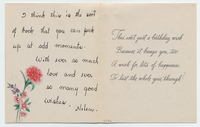 I think this is the sort
of book that you can pick
up at odd moments.
With ever so much
love and ever
so many good
wishes.
Helen.
This isn't just a birthday wish
Because it brings you, too
A wish for lots of happiness
To last the whole year through!